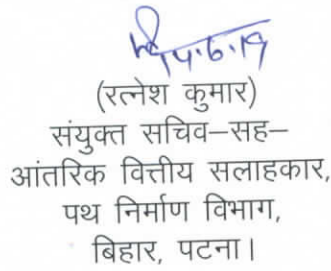 14.6.19
(रत्नेश कुमार)
संयुक्त सचिव–सह–
आंतरिक वित्तीय सलाहकार,
पथ निर्माण विभाग,
बिहार, पटना।